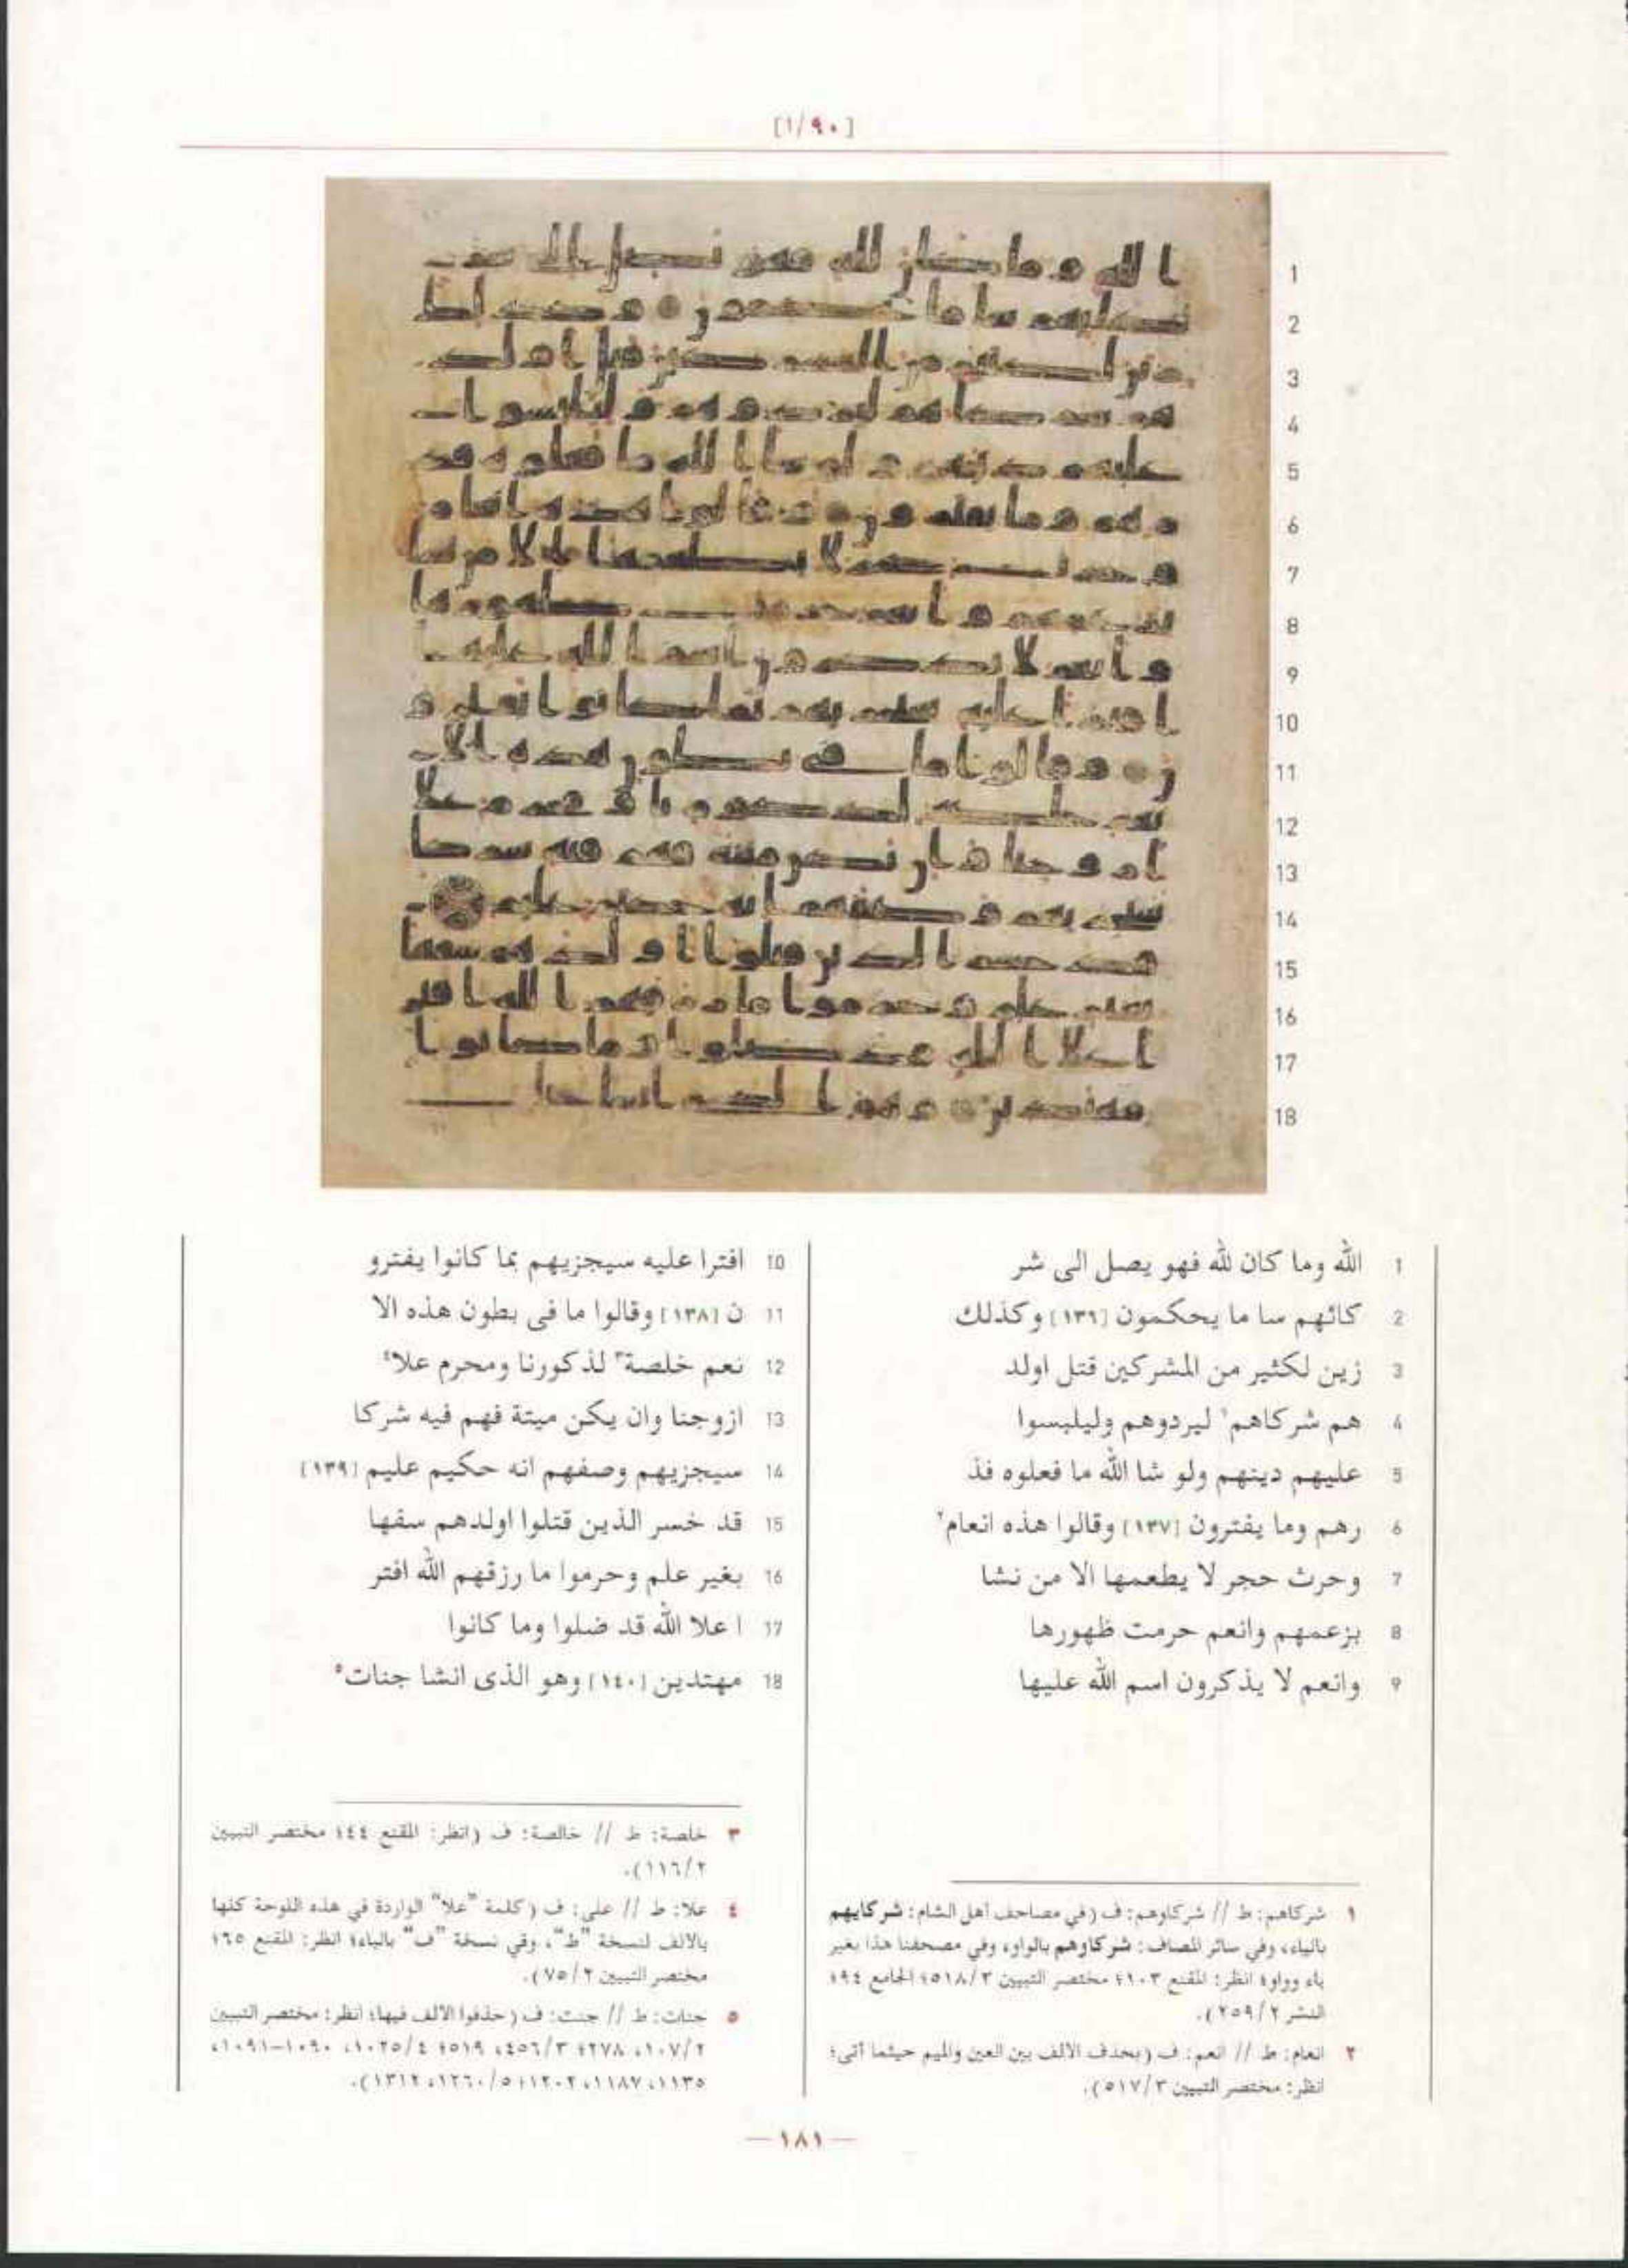 [١/٩٠]
1 الله وما كان لله فهو يصل الى شر
2 كائهم سا ما يحكمون [١٣٦] وكذلك
3 زين لكثير من المشركين قتل اولد
4 هم شركاهم١ ليردوهم وليلبسوا
5 عليهم دينهم ولو شا الله ما فعلوه فذ
6 رهم وما يفترون [١٣٧] وقالوا هذه انعام٢
7 وحرث حجر لا يطعمها الا من نشا
8 بزعمهم وانعم حرمت ظهورها
9 وانعم لا يذكرون اسم الله عليها
10 افترا عليه سيجزيهم بما كانوا يفترو
11 ن [١٣٨] وقالوا ما فى بطون هذه الا
12 نعم خلصة٣ لذكورنا ومحرم علا٤
13 ازوجنا وان يكن ميتة فهم فيه شركا
14 سيجزيهم وصفهم انه حكيم عليم [١٣٩]
15 قد خسر الذين قتلوا اولدهم سفها
16 بغير علم وحرموا ما رزقهم الله افتر
17 ا علا الله قد ضلوا وما كانوا
18 مهتدين [١٤٠] وهو الذى انشا جنات٥
١ شركاهم: ط // شركاوهم: ف (في مصاحف أهل الشام: شركايهم
بالياء، وفي سائر المصاف: شركاوهم بالواو، وفي مصحفنا هذا بغير
ياء وواو؛ انظر: المقنع ١٠٣؛ مختصر التبيين ٥١٨/٣؛ الجامع ٩٤؛
النشر ٢٥٩/٢).
٢ انعام: ط // انعم: ف (بحذف الالف بين العين والميم حيثما أتى؛
انظر: مختصر التبيين ٥١٧/٣).
٣ خلصة: ط // خالصة: ف (انظر: المقنع ٤٤؛ مختصر التبيين
١١٦/٢).
٤ علا: ط // على: ف (كلمة "علا" الواردة في هذه اللوحة كلها
بالألف لنسخة "ط"، وفي نسخة "ف" بالياء؛ انظر: المقنع ٦٥؛
مختصر التبيين ٧٥/٢).
٥ جنات: ط // جنت: ف (حذفوا الالف فيها؛ انظر: مختصر التبيين
١٠٧/٢، ٢٧٨؛ ٤٥٦/٣، ٥١٩؛ ١٠٢٥/٤، ١٠٩٠–١٠٩١،
١١٣٥، ١١٨٧، ١٢٠٢؛ ١٢٦٠/٥، ١٣١٢).
— ١٨١ —